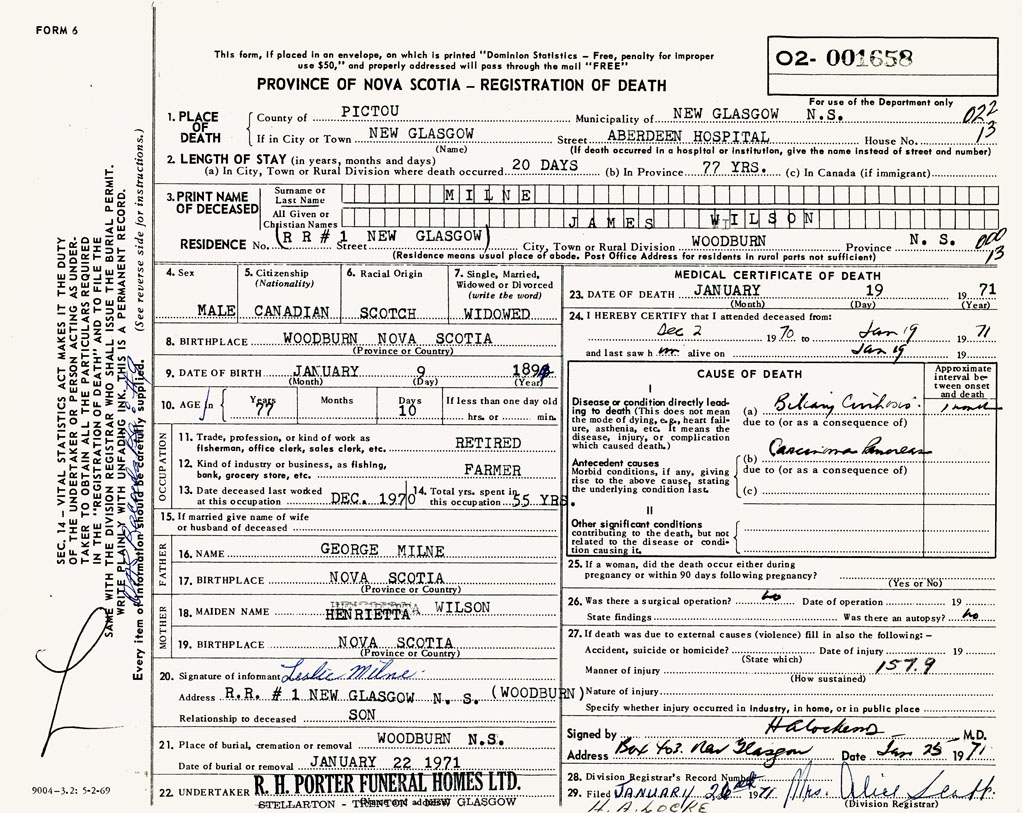 FORM 6
This form, if placed in an envelope, on which is printed "Dominion Statistics – Free, penalty for improper
use $50," and properly addressed will pass through the mail "FREE"
02- 001658
PROVINCE OF NOVA SCOTIA – REGISTRATION OF DEATH
For use of the Department only
1. PLACE OF DEATH
County of PICTOU Municipality of NEW GLASGOW N.S. 022
If in City or Town NEW GLASGOW Street ABERDEEN HOSPITAL House No. 13
(Name) (If death occurred in a hospital or institution, give the name instead of street and number)
2. LENGTH OF STAY (in years, months and days)
(a) In City, Town or Rural Division where death occurred 20 DAYS (b) In Province 77 YRS. (c) In Canada (if immigrant)
3. PRINT NAME OF DECEASED
Surname or Last Name MILNE
All Given or Christian Names JAMES WILSON
RESIDENCE No. (RR#1 NEW GLASGOW) Street City, Town or Rural Division WOODBURN Province N. S. 000
13
(Residence means usual place of abode. Post Office Address for residents in rural parts not sufficient)
4. Sex
MALE
5. Citizenship
(Nationality)
CANADIAN
6. Racial Origin
SCOTCH
7. Single, Married,
Widowed or Divorced
(write the word)
WIDOWED
8. BIRTHPLACE WOODBURN NOVA SCOTIA
(Province or Country)
9. DATE OF BIRTH JANUARY 9 189
(Month) (Day) (Year)
10. AGE in
Years Months Days If less than one day old
77 10 hrs. or min.
OCCUPATION
11. Trade, profession, or kind of work as
fisherman, office clerk, sales clerk, etc. RETIRED
12. Kind of industry or business, as fishing,
bank, grocery store, etc. FARMER
13. Date deceased last worked
at this occupation DEC. 1970
14. Total yrs. spent in
this occupation 55 YRS.
15. If married give name of wife
or husband of deceased
FATHER
16. NAME GEORGE MILNE
17. BIRTHPLACE NOVA SCOTIA
(Province or Country)
MOTHER
18. MAIDEN NAME HENRIETTA WILSON
19. BIRTHPLACE NOVA SCOTIA
(Province or Country)
20. Signature of informant Leslie Milne
Address R.R. # 1 NEW GLASGOW N. S. (WOODBURN)
Relationship to deceased SON
21. Place of burial, cremation or removal WOODBURN N.S.
Date of burial or removal JANUARY 22 1971
22. UNDERTAKER R. H. PORTER FUNERAL HOMES LTD.
STELLARTON - TRENTON - NEW GLASGOW
MEDICAL CERTIFICATE OF DEATH
23. DATE OF DEATH JANUARY 19 1971
(Month) (Day) (Year)
24. I HEREBY CERTIFY that I attended deceased from:
Dec 2 1970 to Jan 19 1971
and last saw h im alive on Jan 19 19
CAUSE OF DEATH
Approximate
interval between
onset
and death
I
Disease or condition directly leading
to death (This does not mean
the mode of dying, e.g., heart failure,
asthenia, etc. It means the
disease, injury, or complication
which caused death.)
(a) Biliary Cirrhosis 1 month
due to (or as a consequence of)
Antecedent causes
Morbid conditions, if any, giving
rise to the above cause, stating
the underlying condition last.
(b) Carcinoma Pancreas
due to (or as a consequence of)
(c)
II
Other significant conditions
contributing to the death, but not
related to the disease or condition
causing it.
25. If a woman, did the death occur either during
pregnancy or within 90 days following pregnancy?
(Yes or No)
26. Was there a surgical operation? no Date of operation 19
State findings Was there an autopsy? no
27. If death was due to external causes (violence) fill in also the following: –
Accident, suicide or homicide? Date of injury 19
(State which)
Manner of injury 157.9
(How sustained)
Nature of injury
Specify whether injury occurred in industry, in home, or in public place
Signed by M.D.
Address Box 403 New Glasgow Date Jan 25 1971
28. Division Registrar's Record Number
29. Filed JANUARY 26 1971 Mrs. Alice
(Division Registrar)
H. A. LOCKE
SEC. 14 – VITAL STATISTICS ACT MAKES IT THE DUTY
OF THE UNDERTAKER OR PERSON ACTING AS UNDERTAKER
TO OBTAIN ALL THE PARTICULARS REQUIRED
IN THE "REGISTRATION OF DEATH" AND TO FILE THE
SAME WITH THE DIVISION REGISTRAR WHO SHALL ISSUE THE BURIAL PERMIT.
WRITE PLAINLY WITH UNFADING INK. THIS IS A PERMANENT RECORD.
Every item of information should be carefully supplied. (See reverse side for instructions.)
9004-3.2: 5-2-69